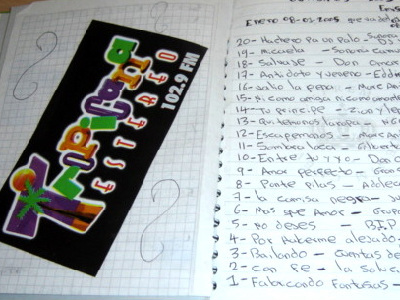 Tropicana
ESTEREO
102.9 FM
ENERO 08-01-2005
20- Hadrero pa un palo -
19- Micaela - Sonora
18- Salvaje - Don Omar
17- Antidoto y veneno - Eddie
16- Valio la pena - Marc An
15- Ni como amiga ni como amante
14- Tu principe - Zion y
13- Quitemonos la ropa - NG
12- Escapemonos - Marc An
11- Sombra loca - Gilberto
10- Entre tu y yo - Don O
9- Amor perfecto - Gran
8- Ponte pilas - Adolec
7- la camisa negra - Ju
6- Mas que Amor - Grupo
5- No dejes - B.I.P
4- Por Haberme alejado -
3- Bailando - Cuentas de
2- con fe - la salsa
1- Falaceando Fantasias -